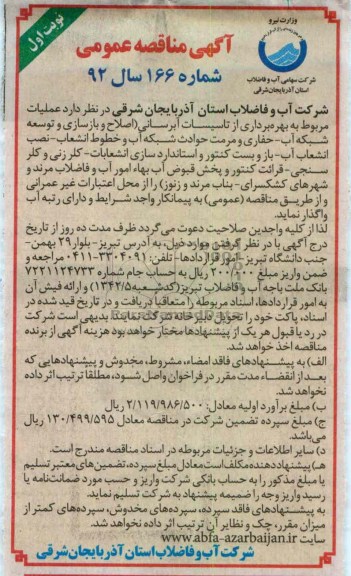 نوبت اول
وزارت نیرو
شرکت سهامی آب و فاضلاب
استان آذربایجان شرقی
آگهی مناقصه عمومی
شماره ۱۶۶ سال ۹۲
شرکت آب و فاضلاب استان آذربایجان شرقی در نظر دارد عملیات
مربوط به بهره‌برداری از تاسیسات آبرسانی (اصلاح و بازسازی و توسعه
شبکه آب- حفاری و مرمت حوادث شبکه آب و خطوط انشعاب- نصب
انشعاب آب- باز و بست کنتور و استاندارد سازی انشعابات- کلر زنی و کلر
سنجی- قرائت کنتور و پخش قبوض آب بهاء امور آب و فاضلاب مرند و
شهرهای کشکسرای- بناب مرند و زنوز) را از محل اعتبارات غیر عمرانی
و از طریق مناقصه (عمومی) به پیمانکار واجد شرایط و دارای رتبه آب
واگذار نماید.
لذا از کلیه واجدین صلاحیت دعوت می‌گردد ظرف مدت ده روز از تاریخ
درج آگهی با در نظر گرفتن موارد ذیل، به آدرس تبریز- بلوار ۲۹ بهمن-
جنب دانشگاه تبریز- امور قراردادها- تلفن: ۳۳۰۴۰۹۱-۰۴۱۱ مراجعه و
ضمن واریز مبلغ ۲۰۰/۰۰۰ ریال به حساب جام شماره ۷۲۲۱۱۲۴۷۳۳
بانک ملت باجه آب و فاضلاب تبریز (کد شعبه ۱۳۴۲/۵) و ارائه فیش آن
به امور قراردادها، اسناد مربوطه را متعاقبا دریافت و در تاریخ قید شده در
اسناد، پاکت خود را تحویل دبیرخانه شرکت نمایند. بدیهی است شرکت
در رد یا قبول هر یک از پیشنهادها مختار خواهد بود هزینه آگهی از برنده
مناقصه اخذ خواهد شد.
الف) به پیشنهادهای فاقد امضاء، مشروط، مخدوش و پیشنهادهایی که
بعد از انقضاء مدت مقرر در فراخوان واصل شود، مطلقا ترتیب اثر داده
نخواهد شد.
ب) مبلغ برآورد اولیه معادل: ۲/۱۱۹/۹۸۶/۵۰۰ ریال
ج) مبلغ سپرده تضمین شرکت در مناقصه معادل ۱۳۰/۴۹۹/۵۹۵ ریال
می‌باشد.
د) سایر اطلاعات و جزئیات مربوطه در اسناد مناقصه مندرج است.
هـ) پیشنهاد دهنده مکلف است معادل مبلغ سپرده، تضمین‌های معتبر تسلیم
یا مبلغ مذکور را به حساب بانکی شرکت واریز و حسب مورد ضمانت‌نامه یا
رسید واریز وجه را ضمیمه پیشنهاد به شرکت تسلیم نماید.
به پیشنهادهای فاقد سپرده، سپرده‌های مخدوش، سپرده‌های کمتر از
میزان مقرر، چک و نظایر آن ترتیب اثر داده نخواهد شد.
سایت www.abfa-azarbaijan.ir
شرکت آب و فاضلاب استان آذربایجان شرقی